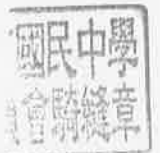 國民中學
會騎縫章